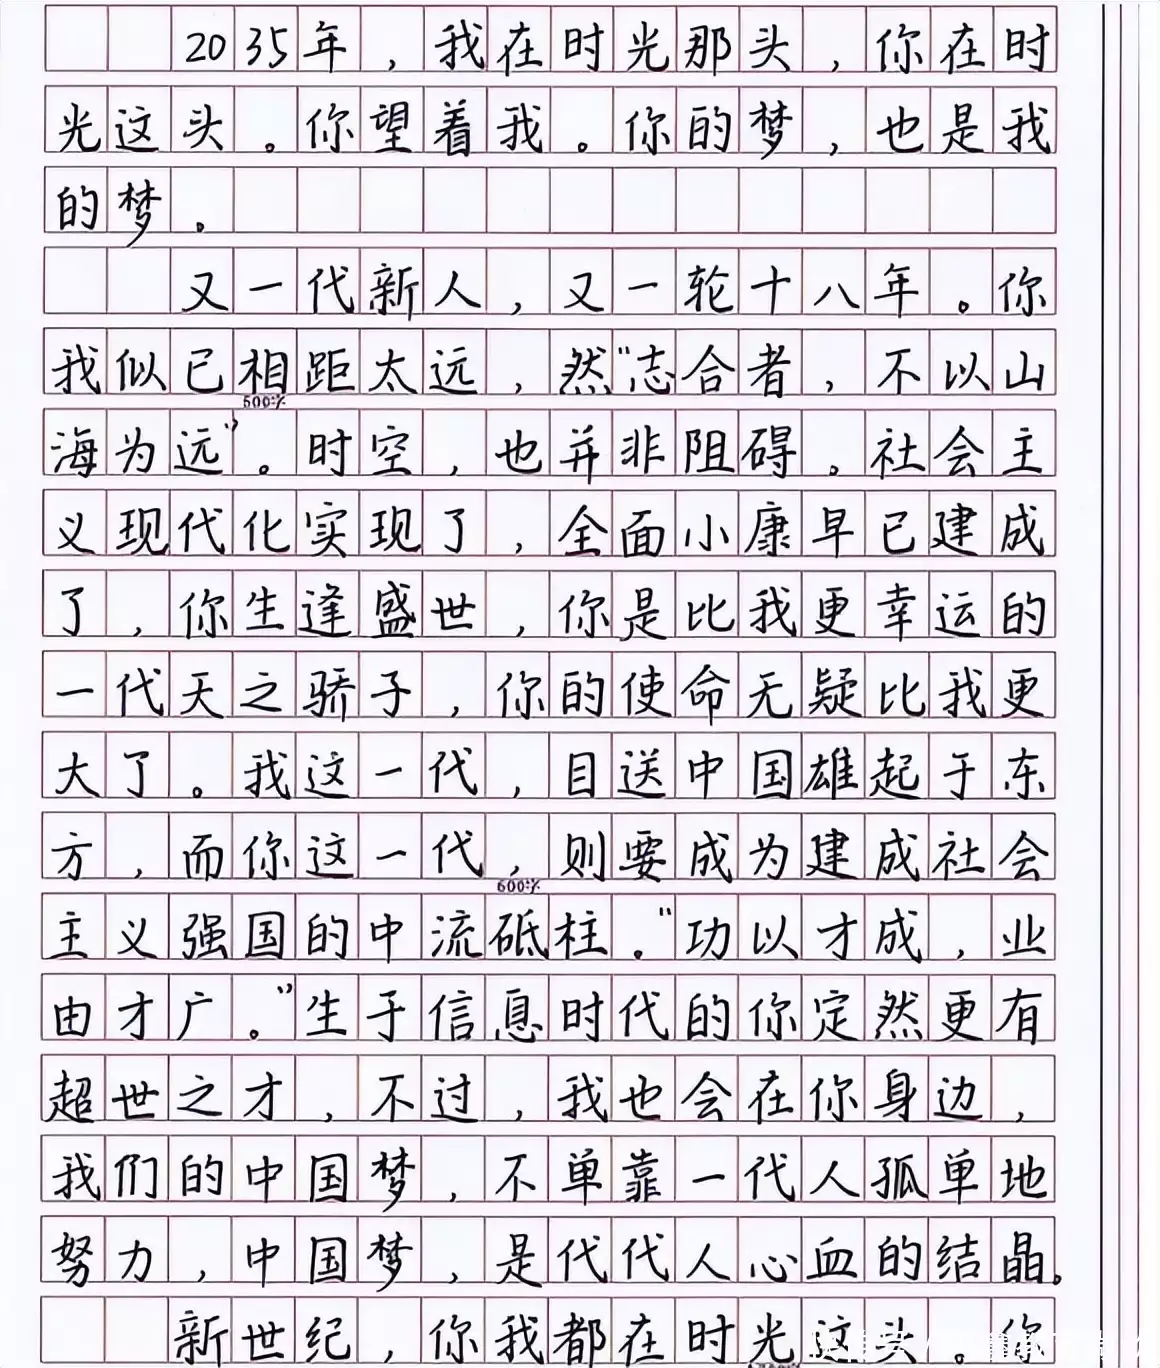 2035年，我在时光那头，你在时
光这头。你望着我。你的梦，也是我
的梦。
又一代新人，又一轮十八年。你
我似已相距太远，然“志合者，不以山
500字
海为远”。时空，也并非阻碍。社会主
义现代化实现了，全面小康早已建成
了，你生逢盛世，你是比我更幸运的
一代天之骄子，你的使命无疑比我更
大了。我这一代，目送中国雄起于东
方，而你这一代，则要成为建成社会
600字
主义强国的中流砥柱。“功以才成，业
由才广。”生于信息时代的你定然更有
超世之才，不过，我也会在你身边，
我们的中国梦，不单靠一代人孤单地
努力，中国梦，是代代人心血的结晶。
新世纪，你我都在时光这头。你